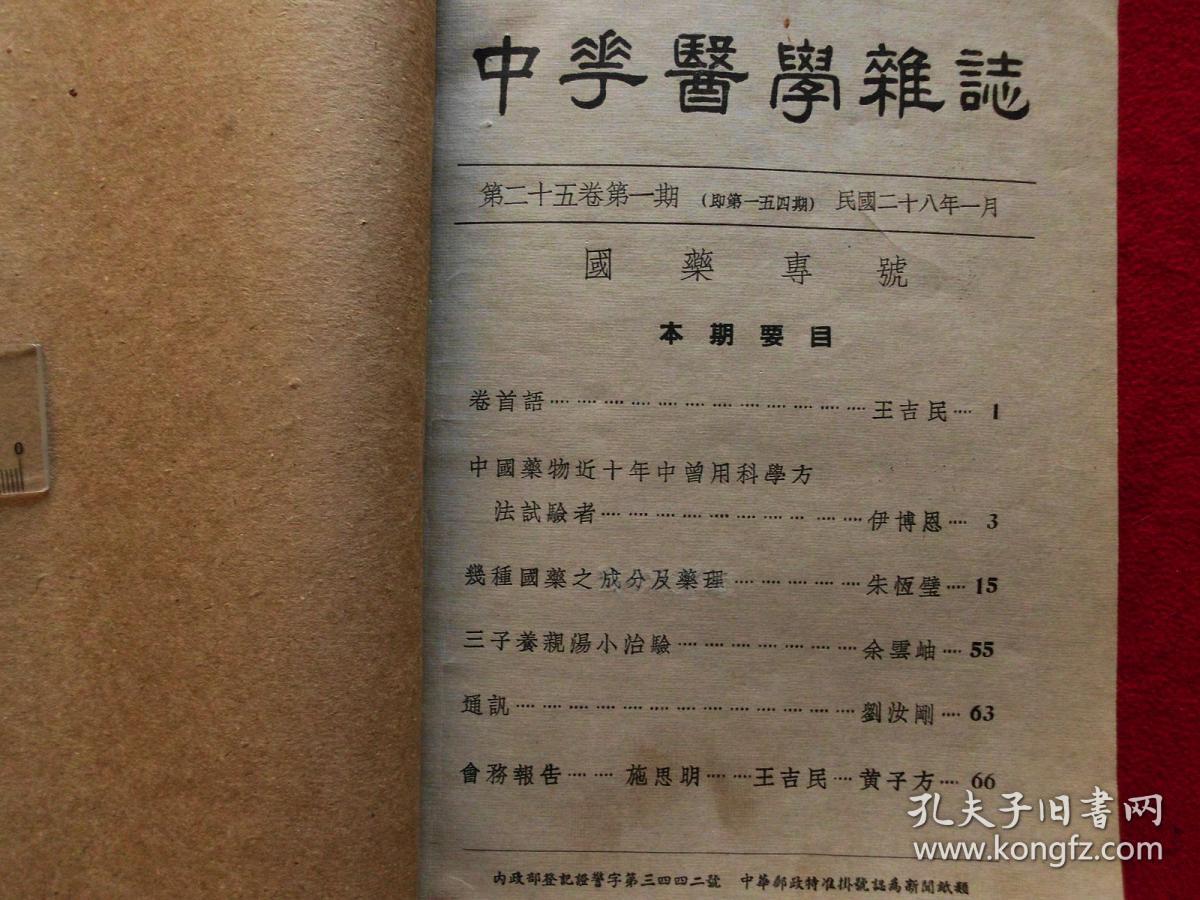 中華醫學雜誌
第二十五卷第一期 (即第一五四期) 民國二十八年一月
國藥專號
本期要目
卷首語 王吉民 1
中國藥物近十年中曾用科學方
法試驗者 伊博恩 3
幾種國藥之成分及藥理 朱恆璧 15
三子養親湯小治驗 余雲岫 55
通訊 劉汝剛 63
會務報告 施思明 王吉民 黃子方 66
內政部登記證警字第三四四二號 中華郵政特准掛號認為新聞紙類
0
孔夫子旧书网
www.kongfz.com